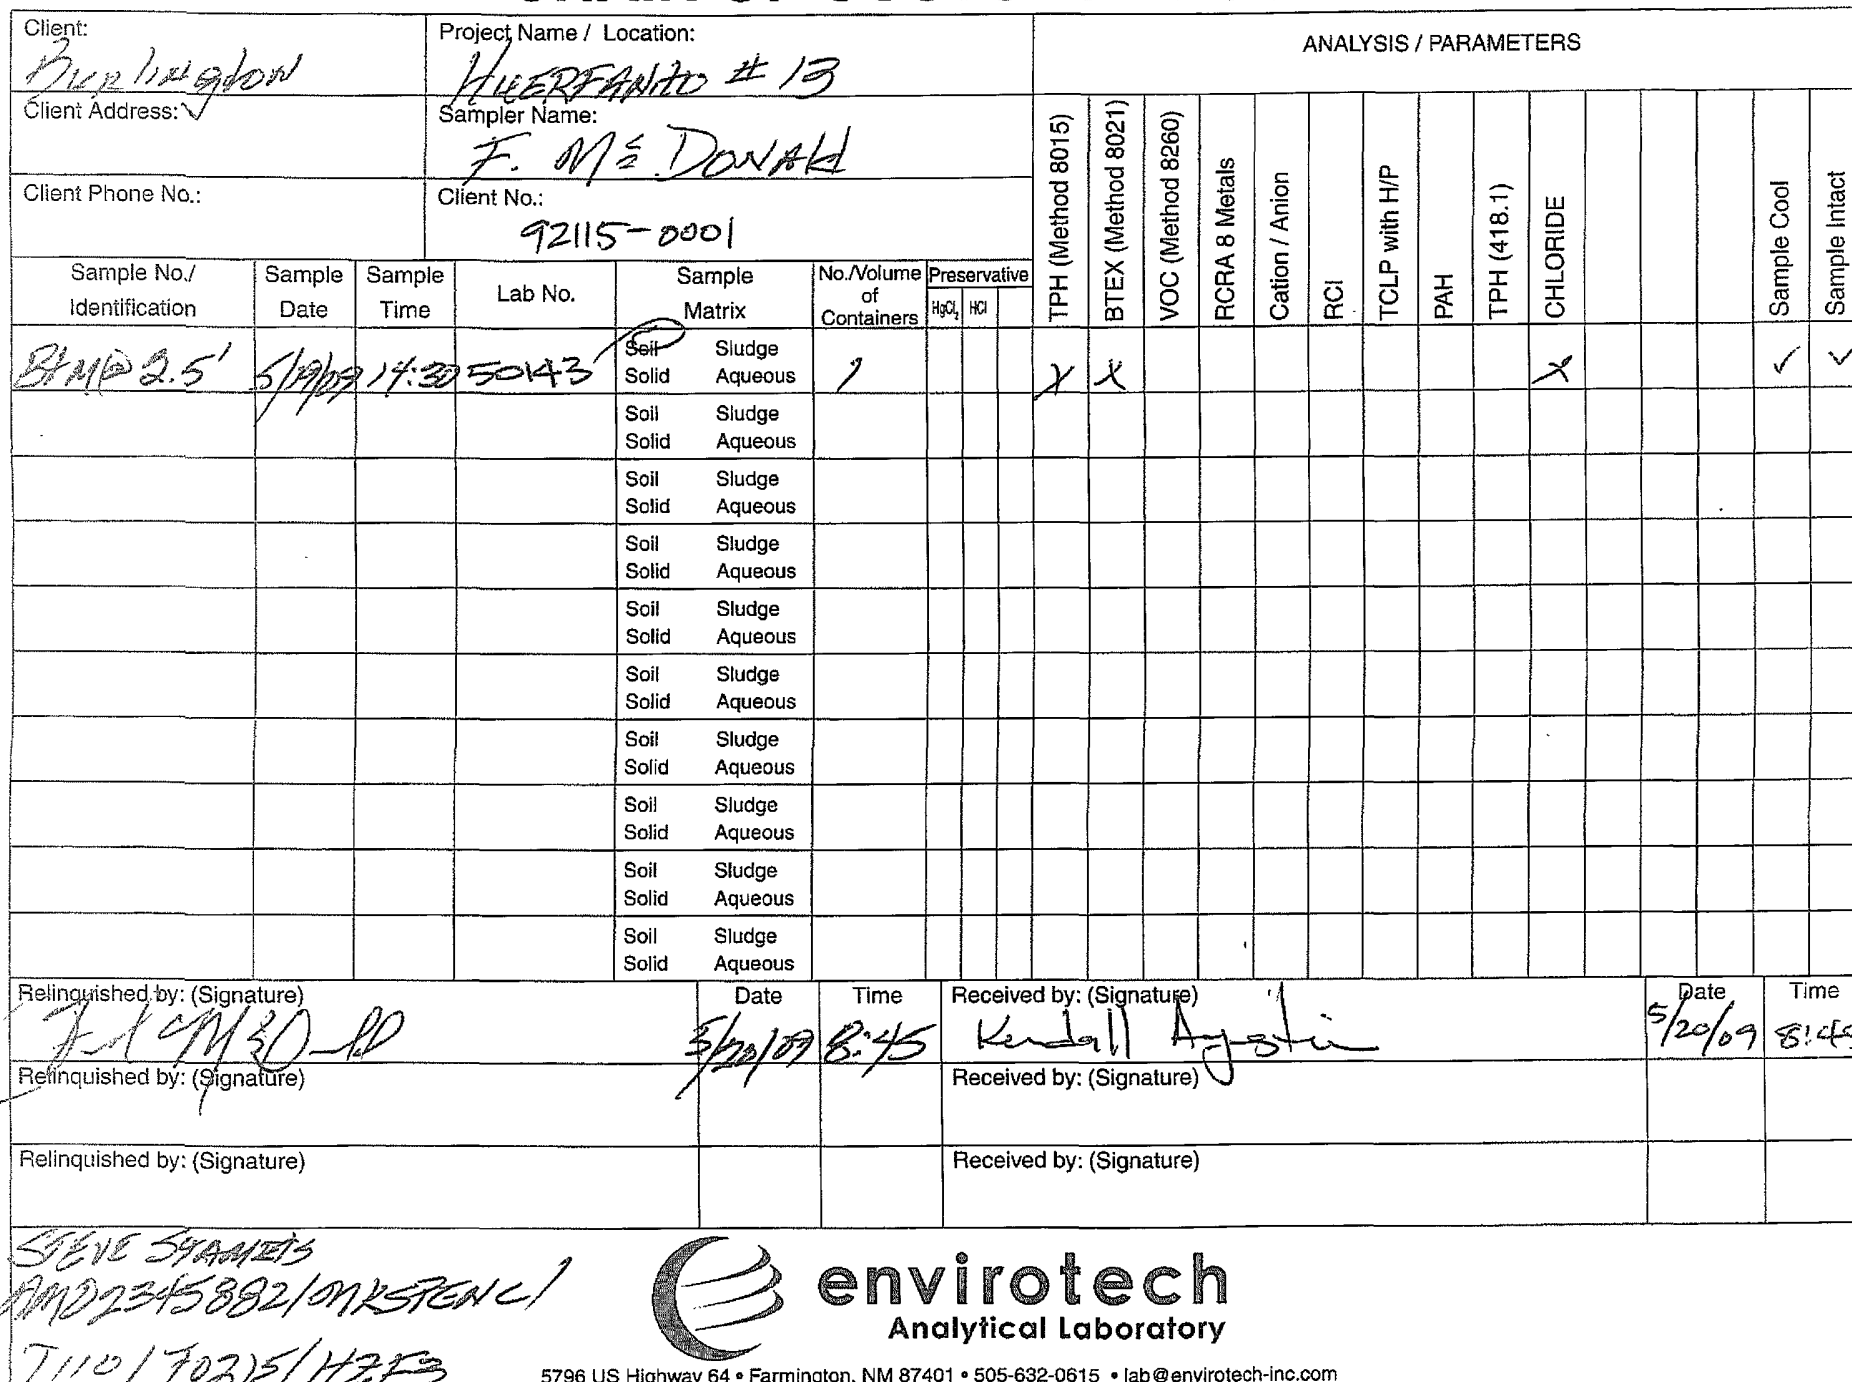 Client:
Burlington
Project Name / Location:
HUERFANITO # 13
ANALYSIS / PARAMETERS
Client Address: ✓
Sampler Name:
F. McDONALD
Client Phone No.:
Client No.:
92115-0001
Sample No./ Identification
Sample Date
Sample Time
Lab No.
Sample Matrix
No./Volume of Containers
Preservative
HgCl₂
HCl
TPH (Method 8015)
BTEX (Method 8021)
VOC (Method 8260)
RCRA 8 Metals
Cation / Anion
RCI
TCLP with H/P
PAH
TPH (418.1)
CHLORIDE
Sample Cool
Sample Intact
BTM@ 2.5' 5/19/09 14:30 50143 Soil Sludge 1 X X X ✓ ✓
Solid Aqueous
Soil Sludge
Solid Aqueous
Soil Sludge
Solid Aqueous
Soil Sludge
Solid Aqueous
Soil Sludge
Solid Aqueous
Soil Sludge
Solid Aqueous
Soil Sludge
Solid Aqueous
Soil Sludge
Solid Aqueous
Soil Sludge
Solid Aqueous
Soil Sludge
Solid Aqueous
Relinquished by: (Signature) Date Time Received by: (Signature) Date Time
5/20/09 8:45 Kendall 5/20/09 8:45
Relinquished by: (Signature) Received by: (Signature)
Relinquished by: (Signature) Received by: (Signature)
STEVE
envirotech
Analytical Laboratory
5796 US Highway 64 • Farmington, NM 87401 • 505-632-0615 • lab@envirotech-inc.com